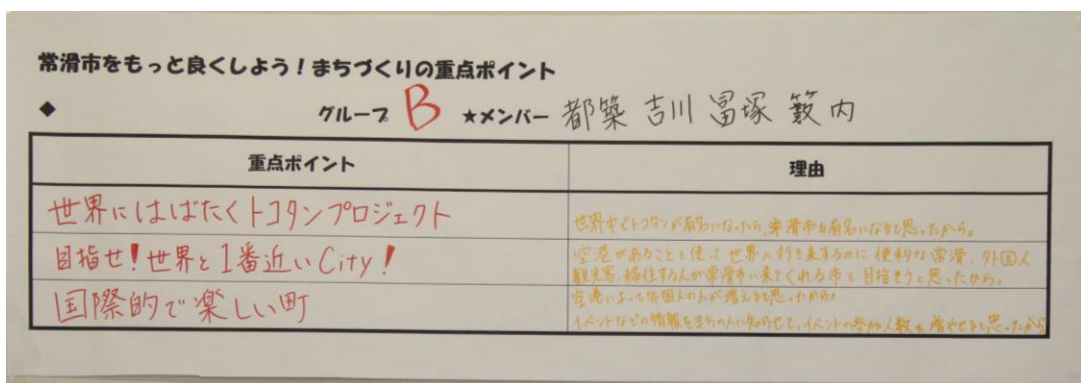 常滑市をもっと良くしよう！まちづくりの重点ポイント
◆ グループ B ★メンバー 都築 吉川 冨塚 籔内
重点ポイント 理由
世界にはばたくトコタンプロジェクト
世界中でトコタンが有名になったら、常滑市も有名になると思ったから。
目指せ！世界と1番近いCity！
空港があることを使って世界へ行き来するのに便利な常滑、外国人
観光客、移住する人が常滑市に来てくれる市を目指そうと思ったから。
国際的で楽しい町
空港によって外国人の人が増えると思ったから。
イベントなどの情報をまちの人に知らせて、イベントの参加人数を増やせると思ったから